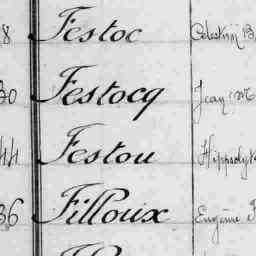 8 Festoc Célestin
30 Festocq Jean M
44 Festou Hippolyte
36 Filloux Eugène